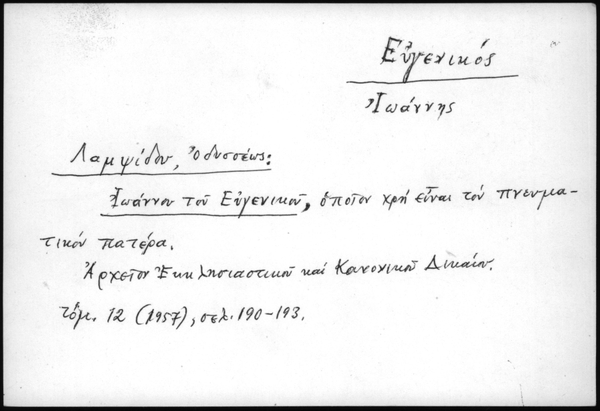 Εὐγενικός
Ἰωάννης
Λαμψίδου, Ὀδυσσέως:
Ἰωάννου τοῦ Εὐγενικοῦ, ὁποῖον χρή εἶναι τόν πνευμα-
τικόν πατέρα.
Ἀρχεῖον Ἐκκλησιαστικοῦ καί Κανονικοῦ Δικαίου.
τόμ. 12 (1957), σελ. 190-193.